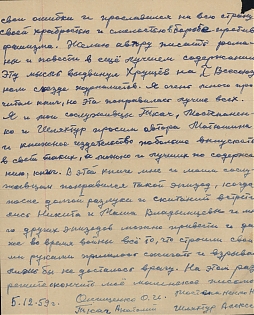 свои ошибки и прославился на всю страну
своей храбростью и смелостью в борьбе против
фашизма. Желаю автору писать рома-
ны и повести в ещё лучшем содержании.
Эту мысль выдвинул Хрущёв на I Всесоюз
ном съезде журналистов. Я очень много про
читал книг, но эта понравилась лучше всех.
Я и мои сослуживцы Тысач,
и Шехтур просим автора
и книжное издательство побольше выпускать
в свет таких, и лучших по содержа
нию, книг. В этой книге мне и моим сослу
живцам понравился такой эпизод, когда
после долгой разлуки и скитаний встрети
лись Никита и Маша Владенцевы и мно
го других эпизодов можно привести и да
же во время войны всё то, что строили свои
ми руками пришлось сжигать и взрывать
лишь бы не досталось врагу. На этом раз
решите окончить моё письмо
5.12.59г. Онищенко О.И.
Тысач Анатолий Шехтур